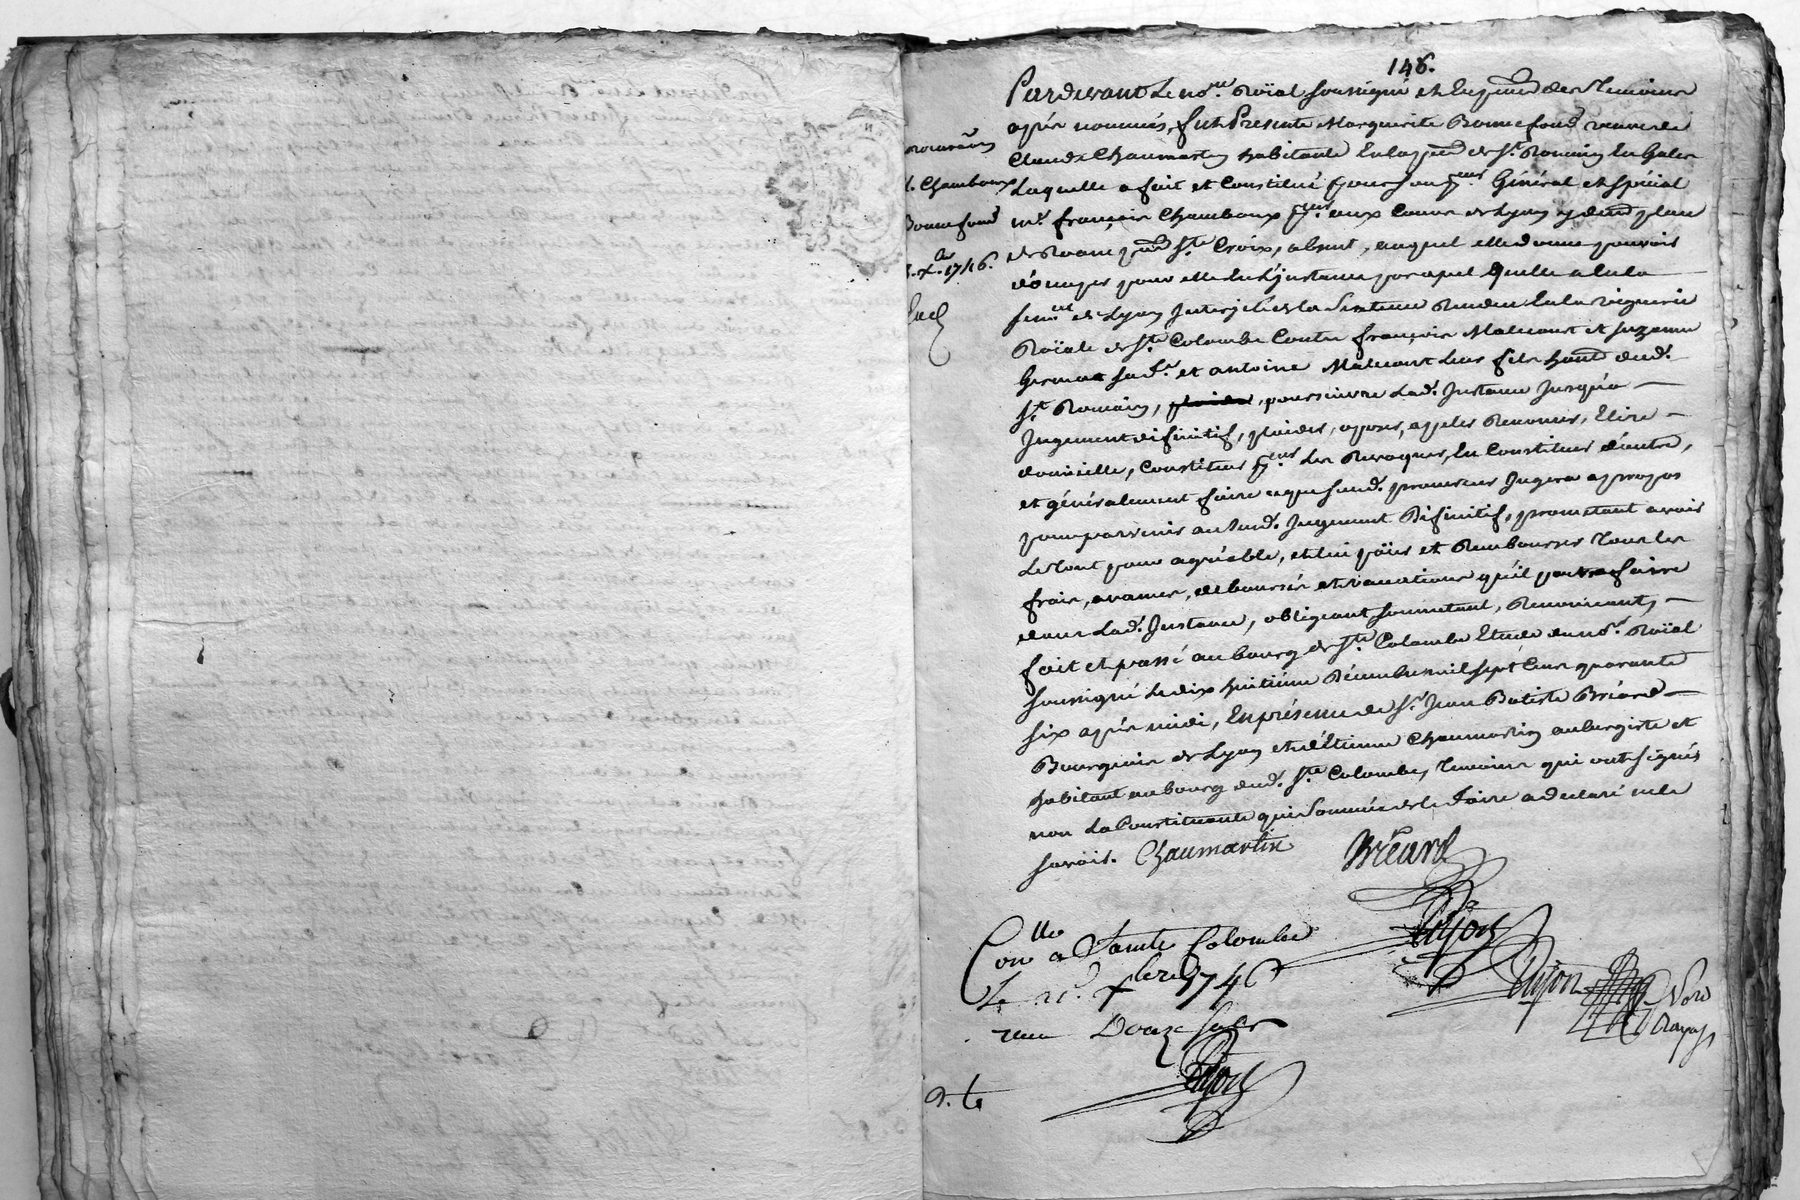 148.
Pardevant Le no.re Roïal soussigné et En pnce des Temoins
après nommés, fut Presente Marguerite Bonnefond veuve de
Claude Chaumartin habitante En la pnce de St. Romain En Galer
Laquelle a fait et Constitué pour son pr.eur Général et spécial
me. françois Chamboux pr.eur aux Cours de Lyon y demt place
de Roane psse Ste. Croix, absent, auquel elle donne pouvoir
d'occuper pour elle En L'Instance par apel quelle a En la
senn.ée de Lyon Interjetté de la Sentence Rendue En la viguerie
Roïale de Ste. Colombe Contre françois Malecourt et Suzanne
sa fe. et antoine Malecourt Leur fils habt. dud.
St. Romain, poursuivre Lad. Instance Jusqu'a
Jugement difinitif, plaider, oposer, appeler Renoncer, Elire
domicille, Constituer pr.eurs Les Revoquer, En Constituer d'autre,
et généralement faire ce que sond. procureur Jugera apropos
pour parvenir au sud. Jugement Difinitif, prometant avoir
Le tout pour agréable, et lui païer et Rembourser Tous les
frais, avances, déboursés et vacations qu'il poura faire
dans Lad. Instance, obligeant soumetant, Renonceant,
fait et passé au bourg de Ste. Colombe Etude du no.re Roïal
soussigné Le dix huitième Décembre mil sept Cens quarante
six après midi, En présence de Sr. Jean Batiste Bréard
Bourgeois de Lyon et d'Etienne Chaumartin aubergiste et
habitant au bourg dud. Ste. Colombe, Temoins qui ont signés
non La Constituante qui Sommée de le faire a declaré ne le
savoir. Chaumartin Bréard
Dujon
Con.lle a Sainte Colombe
Le xbre 1746
reçu Douze sols
Dujon
Dujon No.re
Royal
Chamboux
Bonnefond
xbre 1746.